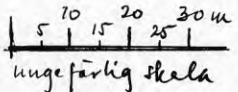 10 20 30 m
5 15 25
ungefärlig skala